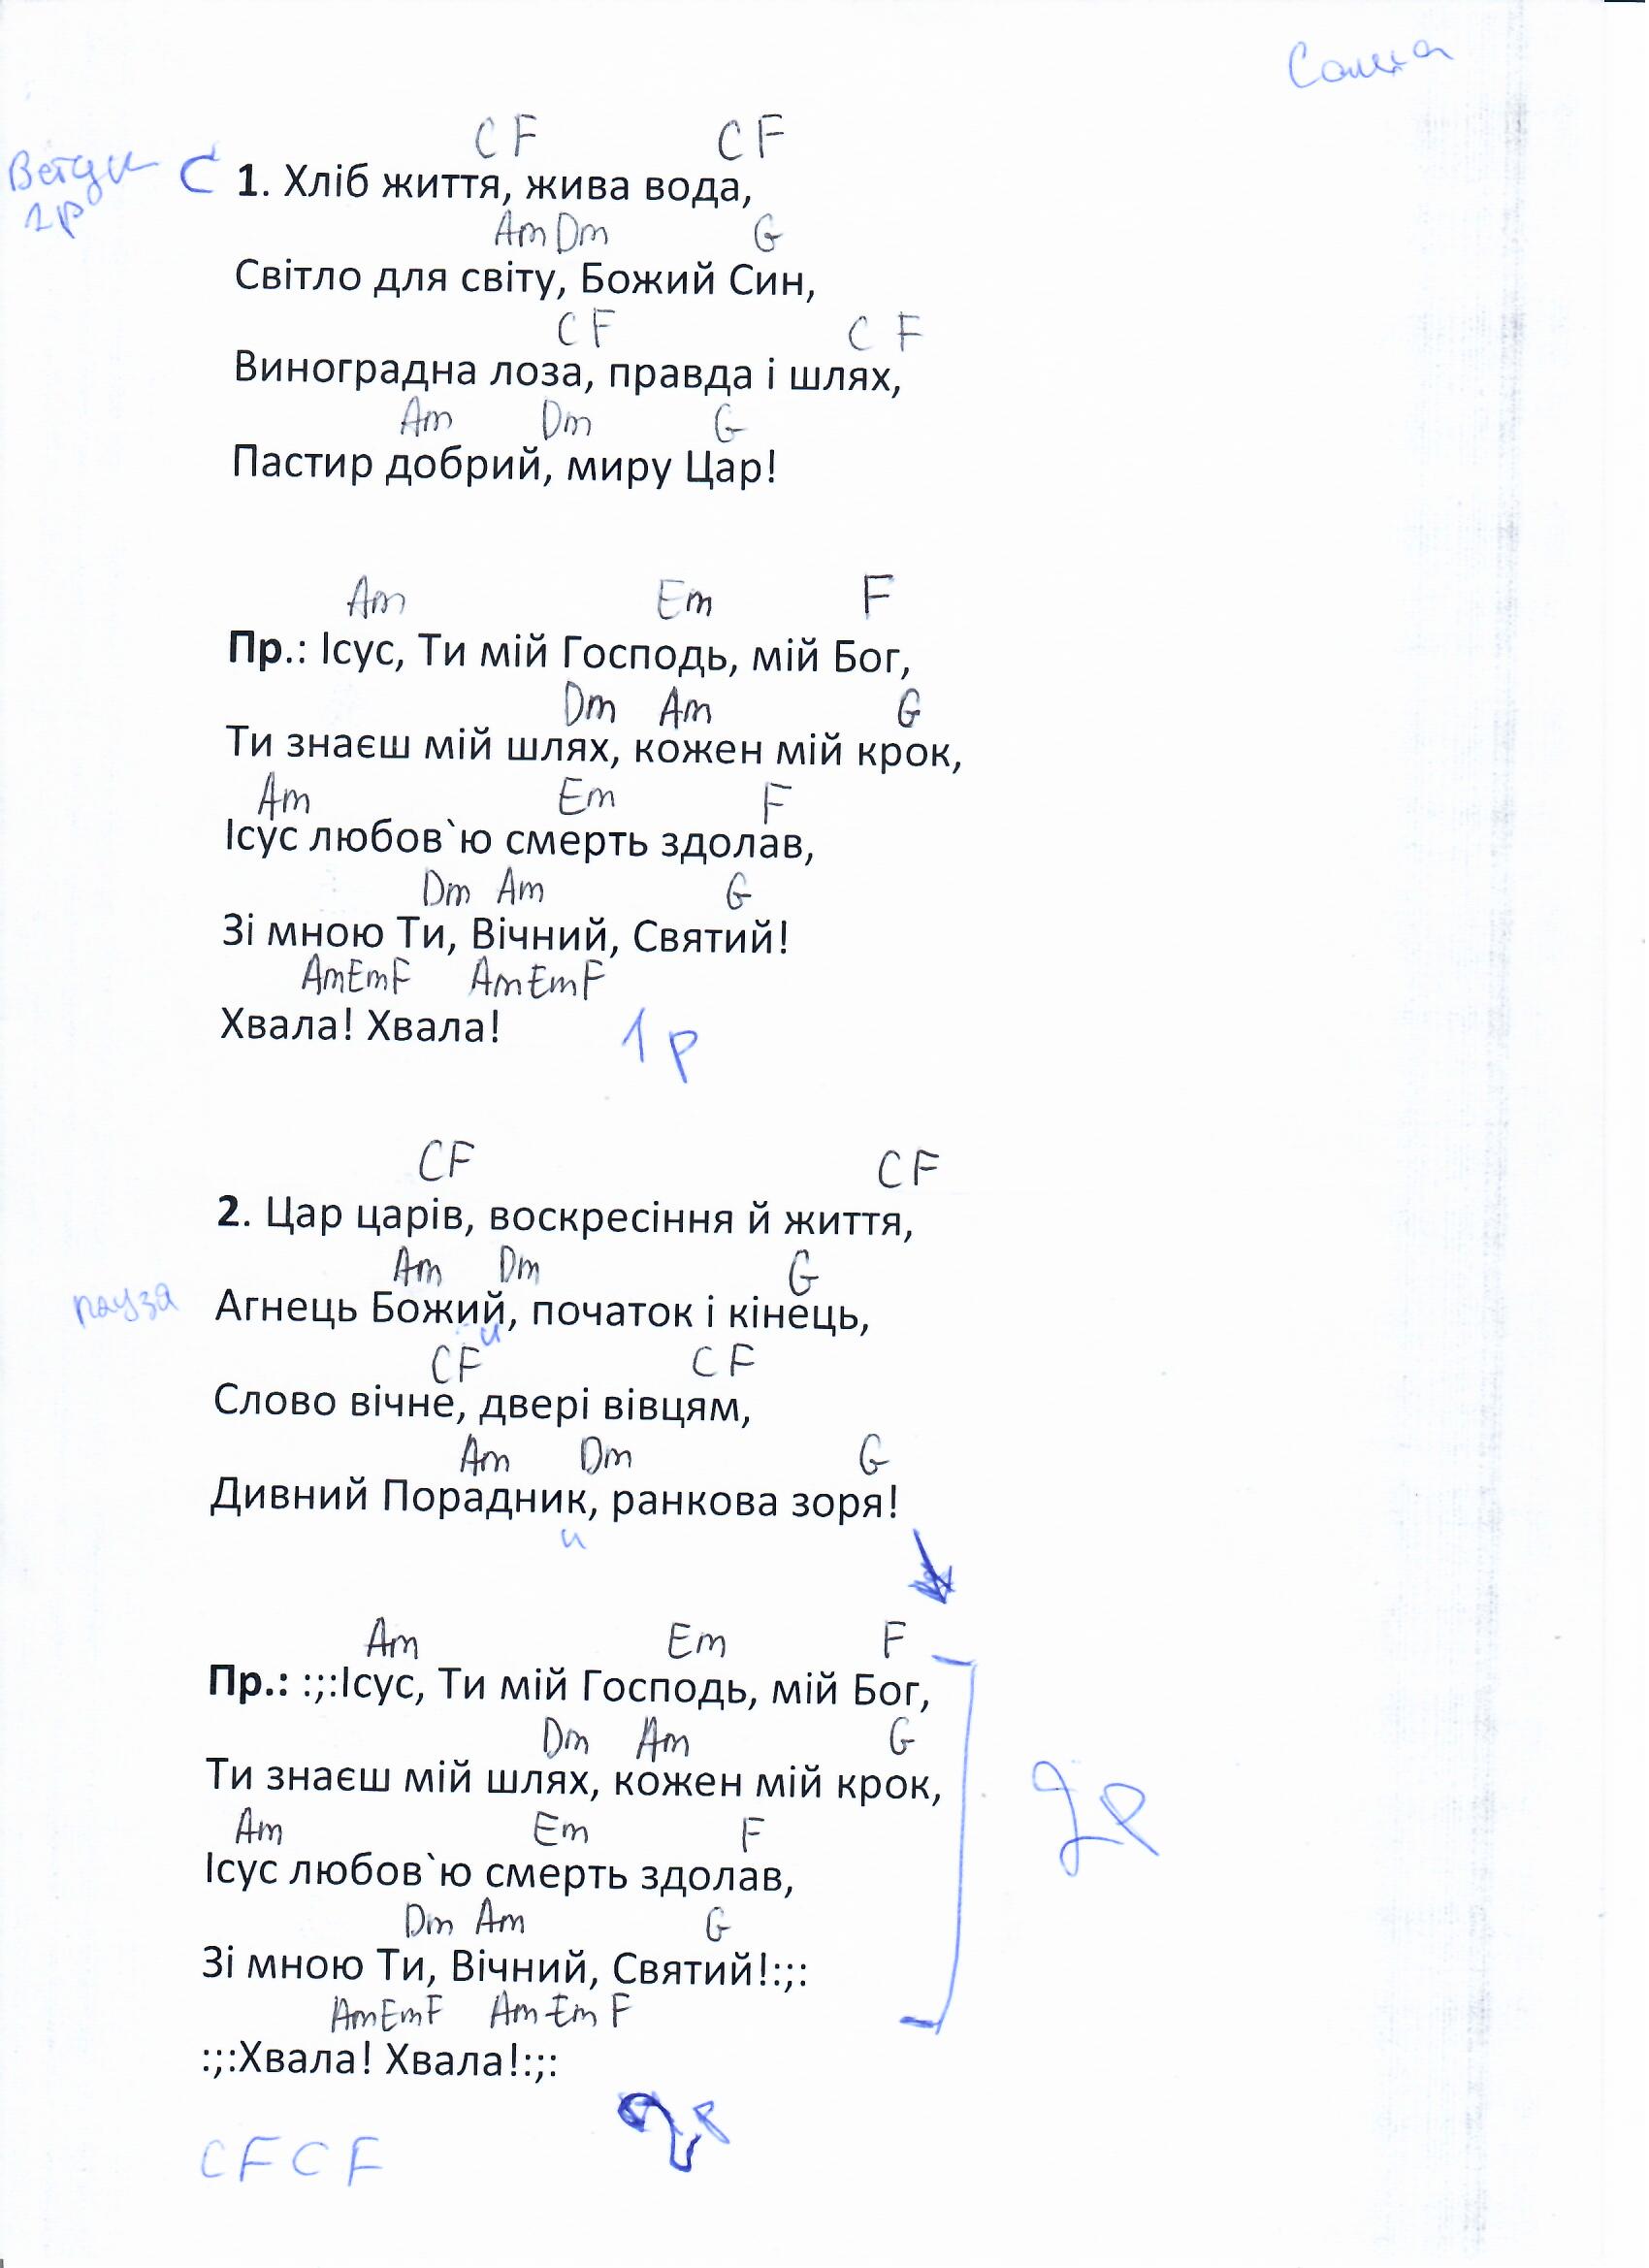 C F C F
Вступ C 1. Хліб життя, жива вода,
Am Dm G
Світло для світу, Божий Син,
C F C F
Виноградна лоза, правда і шлях,
Am Dm G
Пастир добрий, миру Цар!
Am Em F
Пр.: Ісус, Ти мій Господь, мій Бог,
Dm Am G
Ти знаєш мій шлях, кожен мій крок,
Am Em F
Ісус любов`ю смерть здолав,
Dm Am G
Зі мною Ти, Вічний, Святий!
Am Em F Am Em F
Хвала! Хвала! 1р
C F C F
2. Цар царів, воскресіння й життя,
Am Dm G
пауза Агнець Божий, початок і кінець,
и
C F C F
Слово вічне, двері вівцям,
Am Dm G
Дивний Порадник, ранкова зоря!
и
Am Em F
Пр.: :;:Ісус, Ти мій Господь, мій Бог,
Dm Am G
Ти знаєш мій шлях, кожен мій крок,
2р
Am Em F
Ісус любов`ю смерть здолав,
Dm Am G
Зі мною Ти, Вічний, Святий!:;:
Am Em F Am Em F
:;:Хвала! Хвала!:;:
C F C F